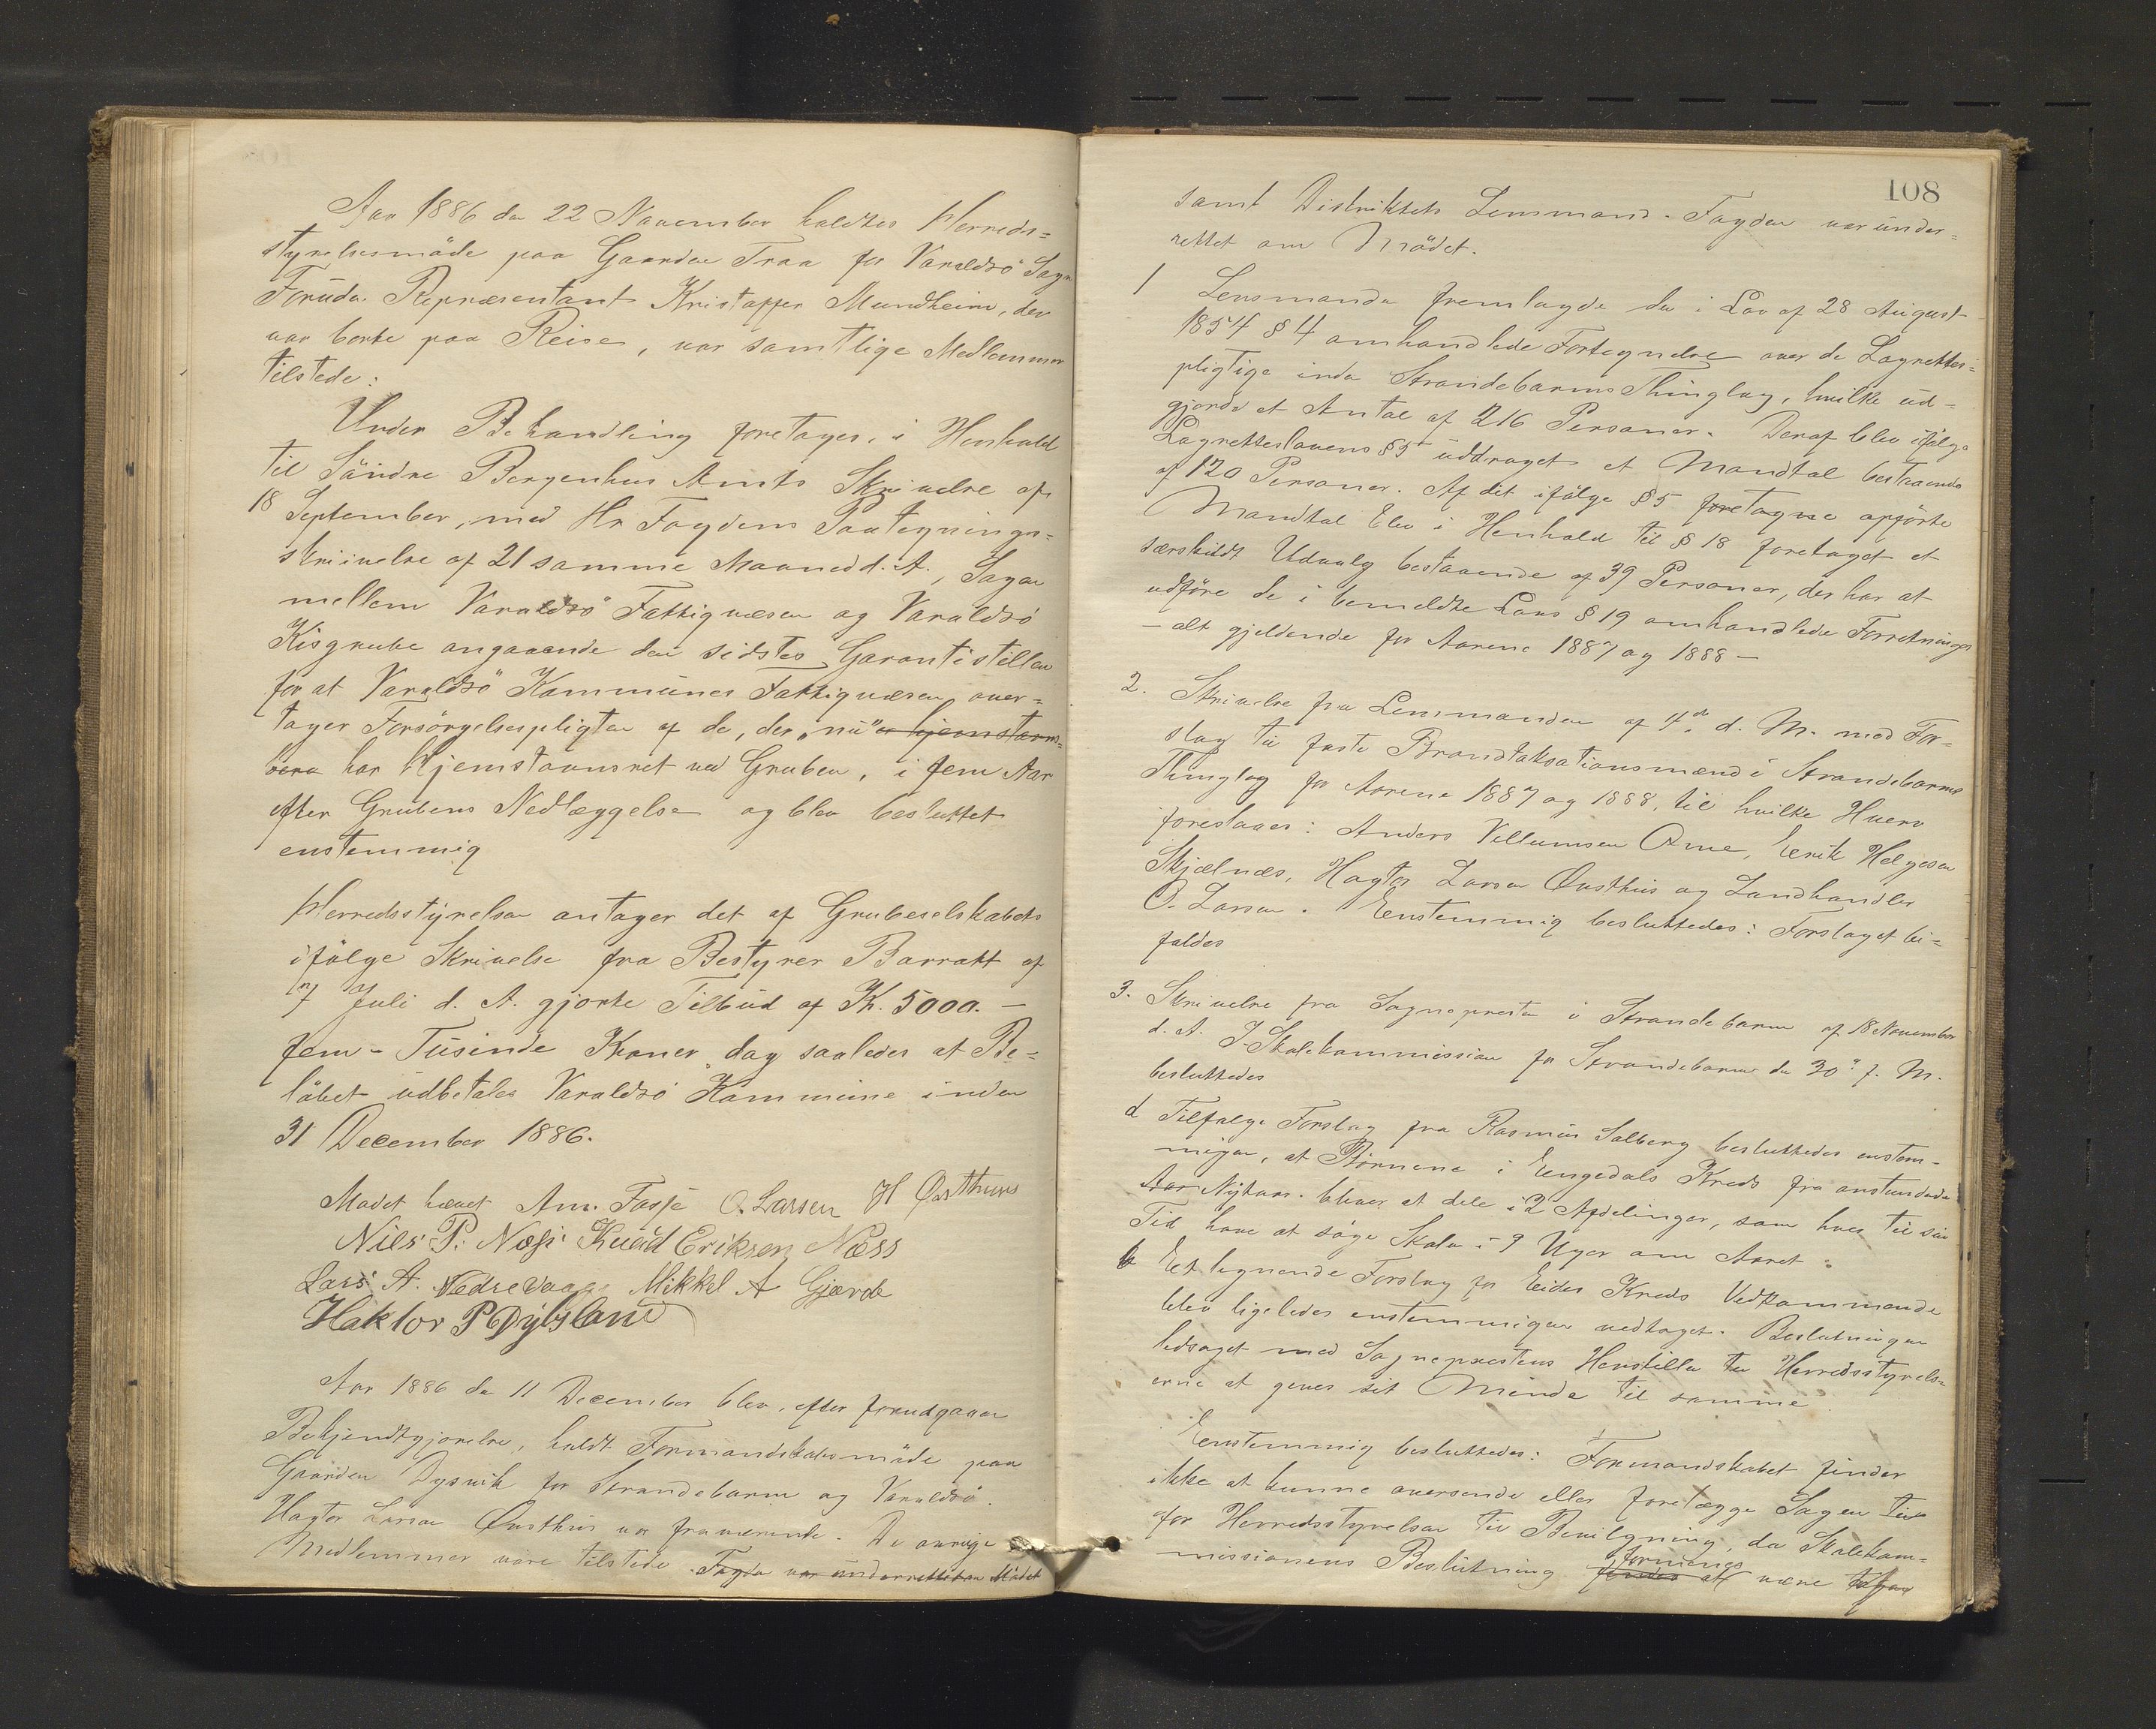 Aar 1886 den 22 November holdtes Herreds=
styrelsesmøde paa Gaarden Traa for Varaldsö Sogn
Foruden Repræsentant Kristoffer Mundheim, der
var borte paa Reise, var samtlige Medlemmer
tilstede:
Under Behandling foretoges, i Henhold
til Söndre Bergenhus Amts Skrivelse af
18 September, med Hr. Fogdens Paategnings=
skrivelse af 21 samme Maaned d. A., Sagen
mellem Varaldsö Fattigvæsen og Varaldsö
Kisgrube angaaende den sidstes Garantistillen
for at Varaldsö Kommunes Fattigvæsen over=
tager Forsörgelsespligten af de, der „nu" er hjemstavns=
bera har Hjemstavnsret ved Gruben, i fem Aar
efter Grubens Nedlæggelse og blev besluttet
enstemmig
Herredsstyrelsen antager det af Grubeselskabets
ifölge Skrivelse fra Bestyrer Barratt af
7 Juli d. A. gjorte Tilbud af Kr. 5000. —
fem - Tusinde Kroner, dog saaledes at Be=
löbet udbetales Varaldsö Kommune inden
31 December 1886.
Mödet hævet Am. Fosse O. Larsen H Østhuus
Nils P. Næss Knud Eriksen Næss
Lars A. Nedrevaage Mikkel A Gjerde
Haktor P Dybsland
Aar 1886 den 11 December blev, efter forudgaaen
Bekjendtgjørelse, holdt Formandskabsmöde paa
Gaarden Dysvik for Strandebarm og Varaldsö.
Hagtor Larsen Østhus var fraværende. De øvrige
Medlemmer vare tilstede. Fogden var underrettet om Mødet
108
samt Distriktets Lensmand. Fogden var under=
rettet om Mödet.
1 Lensmanden fremlagde den i Lov af 28 August
1854 § 4 omhandlede Fortegnelse over de Lagrettes=
pligtige inden Strandebarms Thinglag, hvilke ud=
gjorde et Antal af 216 Personer. Deraf blev ifølge
Lagretteslovens § 5 uddraget et Mandtal bestaaende
af 120 Personer. Af det ifölge § 5 foretagne opförte
Mandtal blev i Henhold til § 18 foretaget et
særskildt Udvalg bestaaende af 39 Personer, der har at
udføre de i bemeldte Lovs § 19 omhandlede Forretninger
— alt gjeldende for Aarene 1887 og 1888 —
2. Skrivelse fra Lensmanden af 4de d. M. med For=
slag til faste Brandtaksationsmænd i Strandebarms
Thinglag for Aarene 1887 og 1888, til hvilke Hverv
foreslaaes: Anders Villumsen Øme, Eerik Helgesen
Skjælnæs, Hagtor Larsen Østhus og Landhandler
O. Larsen. Eenstemmig besluttedes: Forslaget bi=
faldes
3. Skrivelse fra Sognepresten i Strandebarm af 18 November
d. A. I Skolekommission for Strandebarm den 30te f. M.
besluttedes
d Tilfølge Forslag fra Rasmus Solberg besluttedes enstem-
migen, at Børnene i Engedals Kreds fra anstundende
Aar Nytaar bliver at dele i 2 Afdelinger, som hver til sin
Tid have at søge Skolen i 9 Uger om Aaret.
b Et lignende Forslag for Eides Kreds Vedkommende
blev ligeledes enstemmigen vedtaget. Beslutningen
ledsaget med Sogneprestens Henstillen til Herredsstyrels=
erne at gives sit Minde til samme.
Eenstemmig besluttedes: Formandskabet finder
ikke at kunne oversende eller forelægge Sagen til
for Herredsstyrelsen til Bevilgning, da Skolekom=
missionens Beslutning finder at formenes være